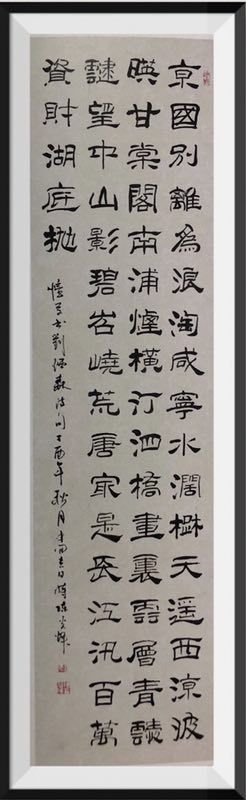 京國別離為浪淘咸寧水濶楚天遥西涼波
暎甘棠閣南浦煙橫汀泗橋畫裏雲層青靉
靆望中山影碧岧嶢荒唐冣是長江汛百萬
資財湖底拋
丁酉年秋月